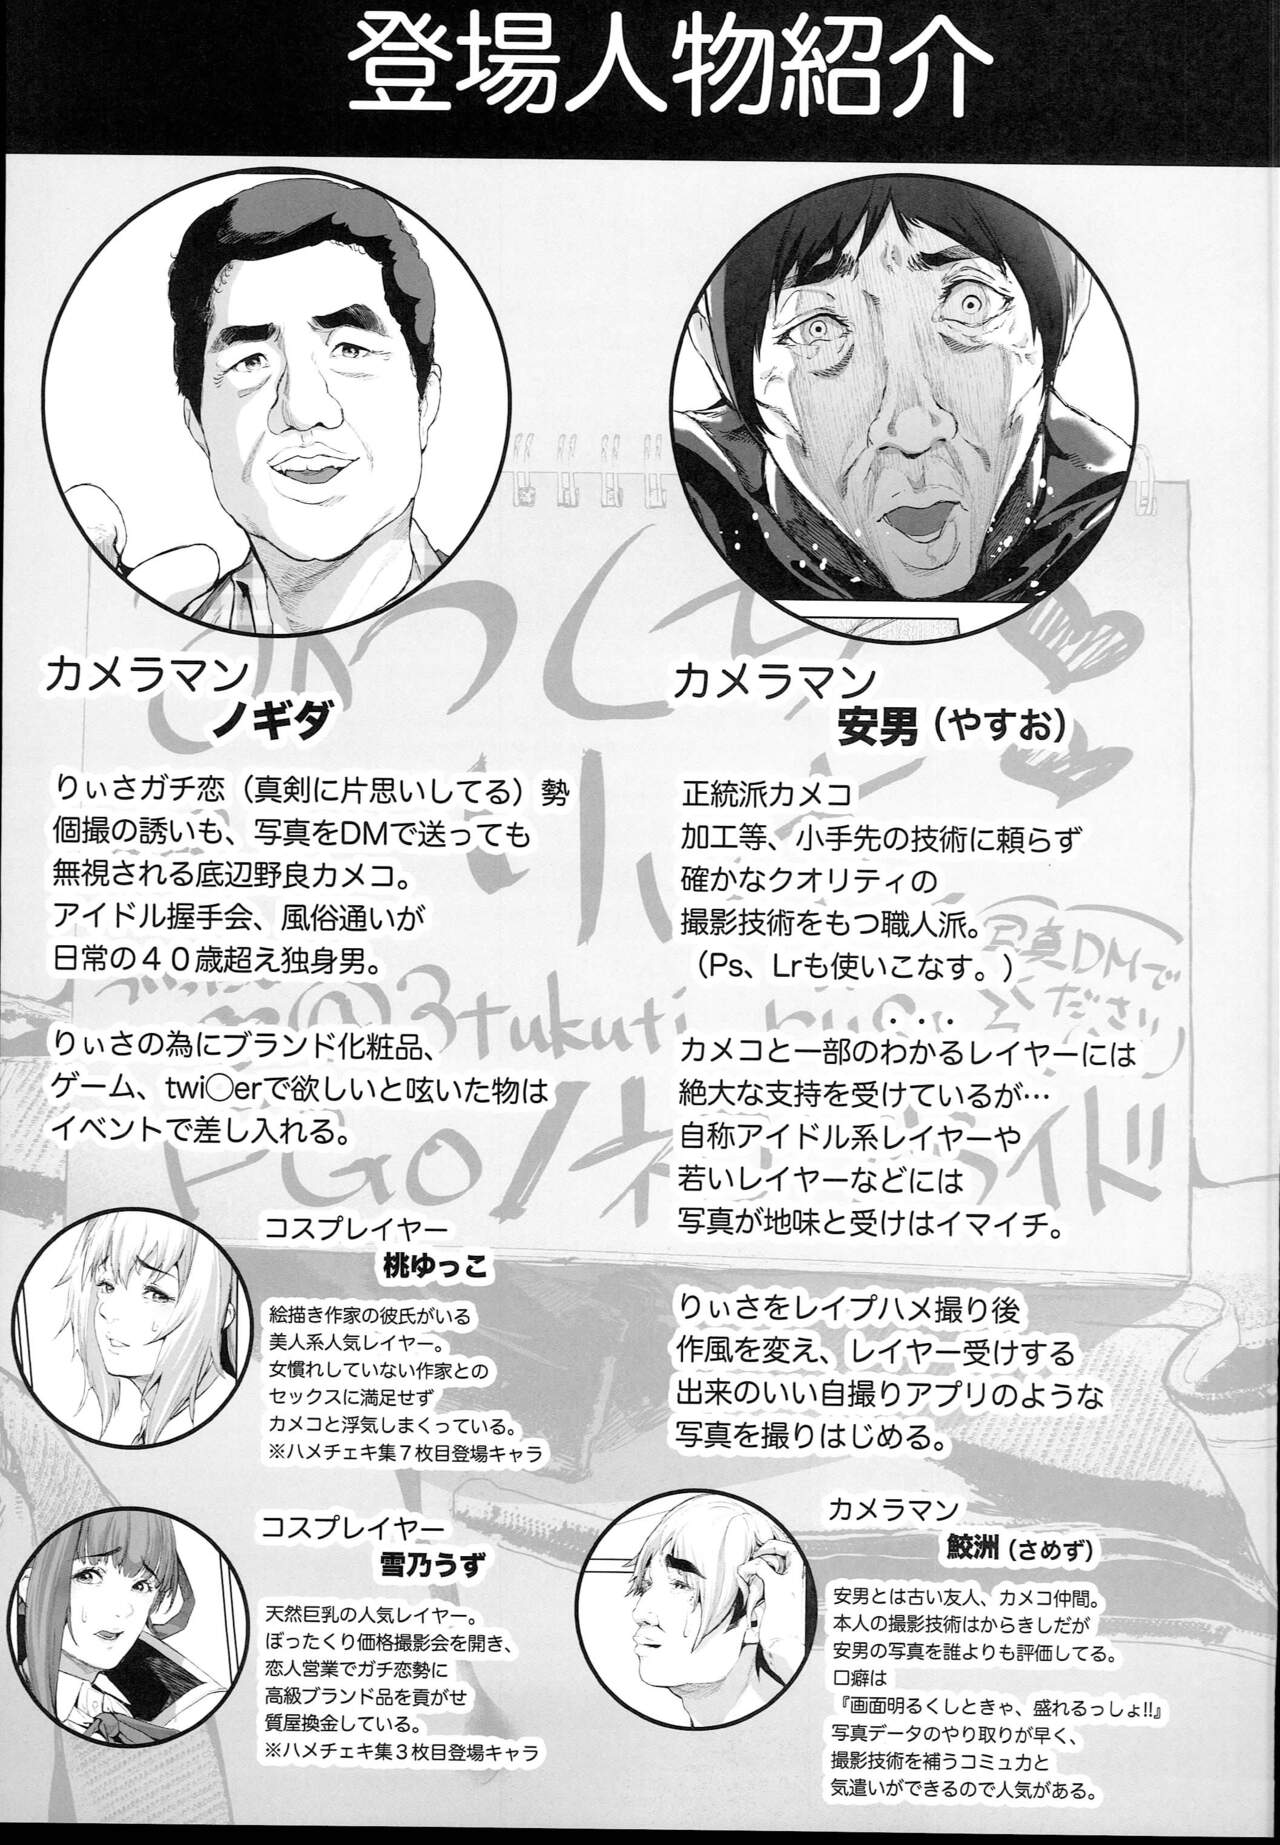 登場人物紹介
カメラマン
ノギダ
りぃさガチ恋（真剣に片思いしてる）勢
個撮の誘いも、写真をDMで送っても
無視される底辺野良カメコ。
アイドル握手会、風俗通いが
日常の４０歳超え独身男。
りぃさの為にブランド化粧品、
ゲーム、twi◯erで欲しいと呟いた物は
イベントで差し入れる。
カメラマン
安男（やすお）
正統派カメコ
加工等、小手先の技術に頼らず
確かなクオリティの
撮影技術をもつ職人派。
（Ps、Lrも使いこなす。）
カメコと一部のわかるレイヤーには
絶大な支持を受けているが…
自称アイドル系レイヤーや
若いレイヤーなどには
写真が地味と受けはイマイチ。
りぃさをレイプハメ撮り後
作風を変え、レイヤー受けする
出来のいい自撮りアプリのような
写真を撮りはじめる。
コスプレイヤー
桃ゆっこ
絵描き作家の彼氏がいる
美人系人気レイヤー。
女慣れしていない作家との
セックスに満足せず
カメコと浮気しまくっている。
※ハメチェキ集７枚目登場キャラ
コスプレイヤー
雪乃うず
天然巨乳の人気レイヤー。
ぼったくり価格撮影会を開き、
恋人営業でガチ恋勢に
高級ブランド品を貢がせ
質屋換金している。
※ハメチェキ集３枚目登場キャラ
カメラマン
鮫洲（さめず）
安男とは古い友人、カメコ仲間。
本人の撮影技術はからきしだが
安男の写真を誰よりも評価してる。
口癖は
『画面明るくしときゃ、盛れるっしょ!!』
写真データのやり取りが早く、
撮影技術を補うコミュ力と
気遣いができるので人気がある。
写真DMで
ください